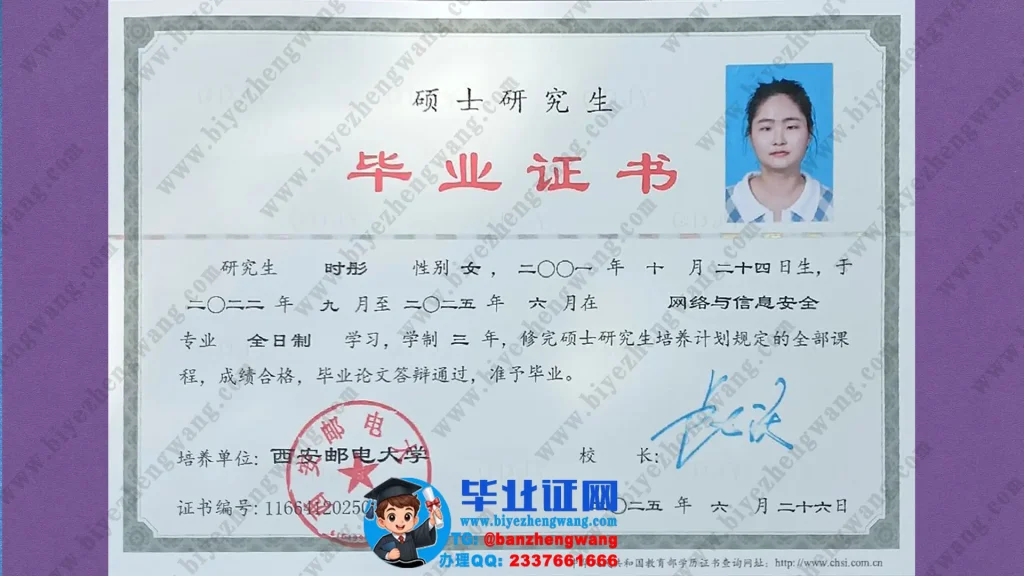 硕士研究生
毕业证书
研究生 时彤 性别 女，二〇〇一 年 十 月 二十四 日生，于
二〇二二 年 九 月至 二〇二五 年 六 月在 网络与信息安全
专业 全日制 学习，学制 三 年，修完硕士研究生培养计划规定的全部课
程，成绩合格，毕业论文答辩通过，准予毕业。
西安邮电大
培养单位：西安邮电大学 校 长：
证书编号：11664120250 〇二五 年 六 月 二十六 日
毕业证网
www.biyezhengwang.com
TG: @banzhengwang
办理QQ: 2337661666
共和国教育部学历证书查询网址：http://www.chsi.com.cn
www.biyezhengwang.com